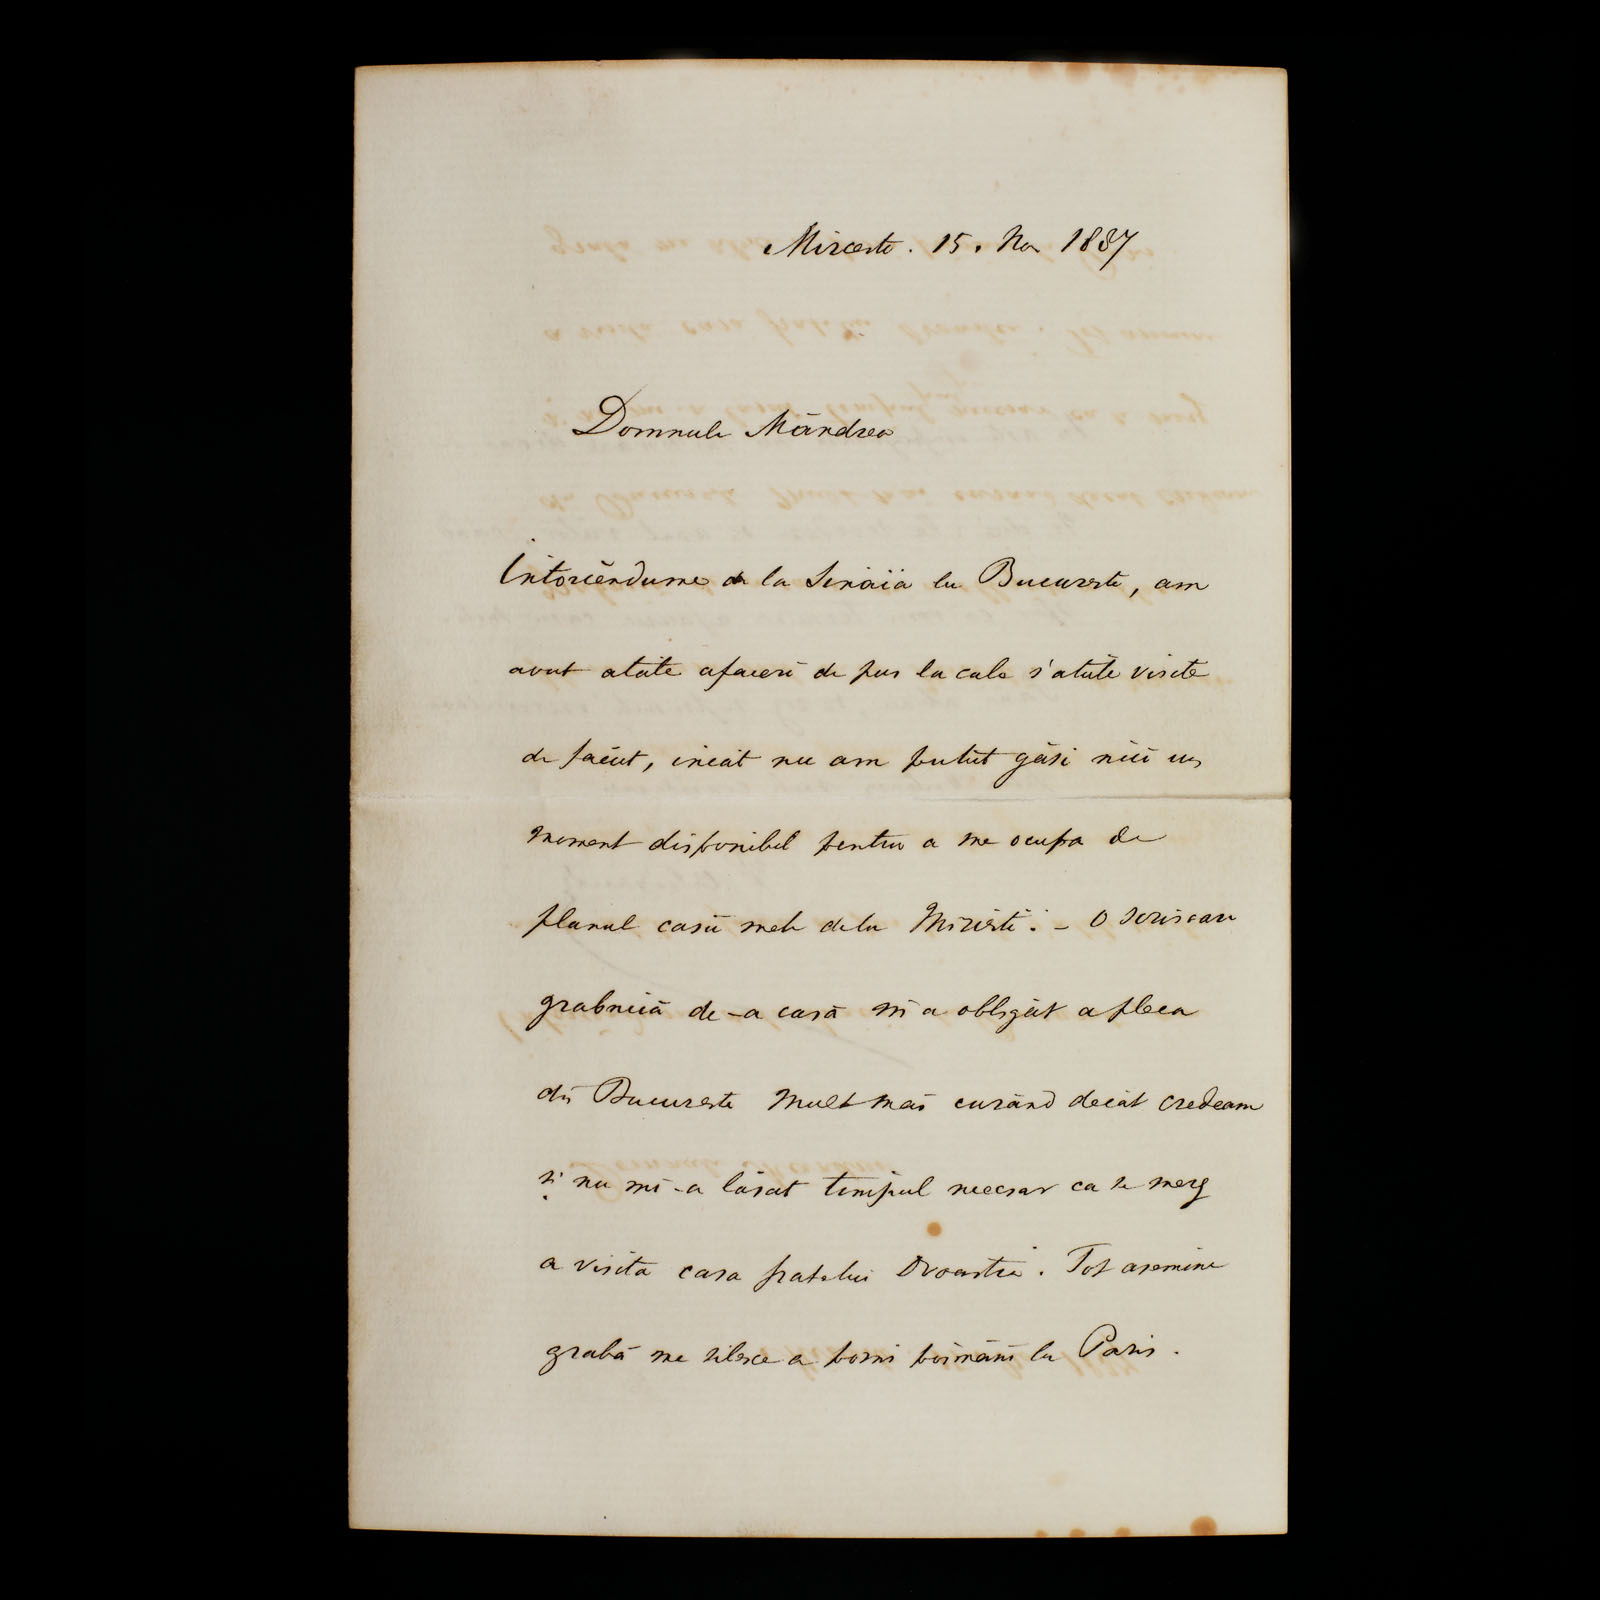 Mircesti. 15. Nov 1887
Domnule Mândrea
Intorcĕndume de la Sinaïa la Bucuresti, am
avut atâte afaceri de pus la cale s'atâte visite
de făcut, incât nu am putut găsi nici un
moment disponibil pentru a me ocupa de
planul casii mele dela Mircesti. – O scrisoare
grabnică de-a casă m'a obligat a pleca
din Bucuresti mult mai curând decât credeam
și nu mi-a lăsat timpul necesar ca se merg
a visita casa fratelui Dvoastre. Tot asemine
grabă me silesce a porni poimâni la Paris.